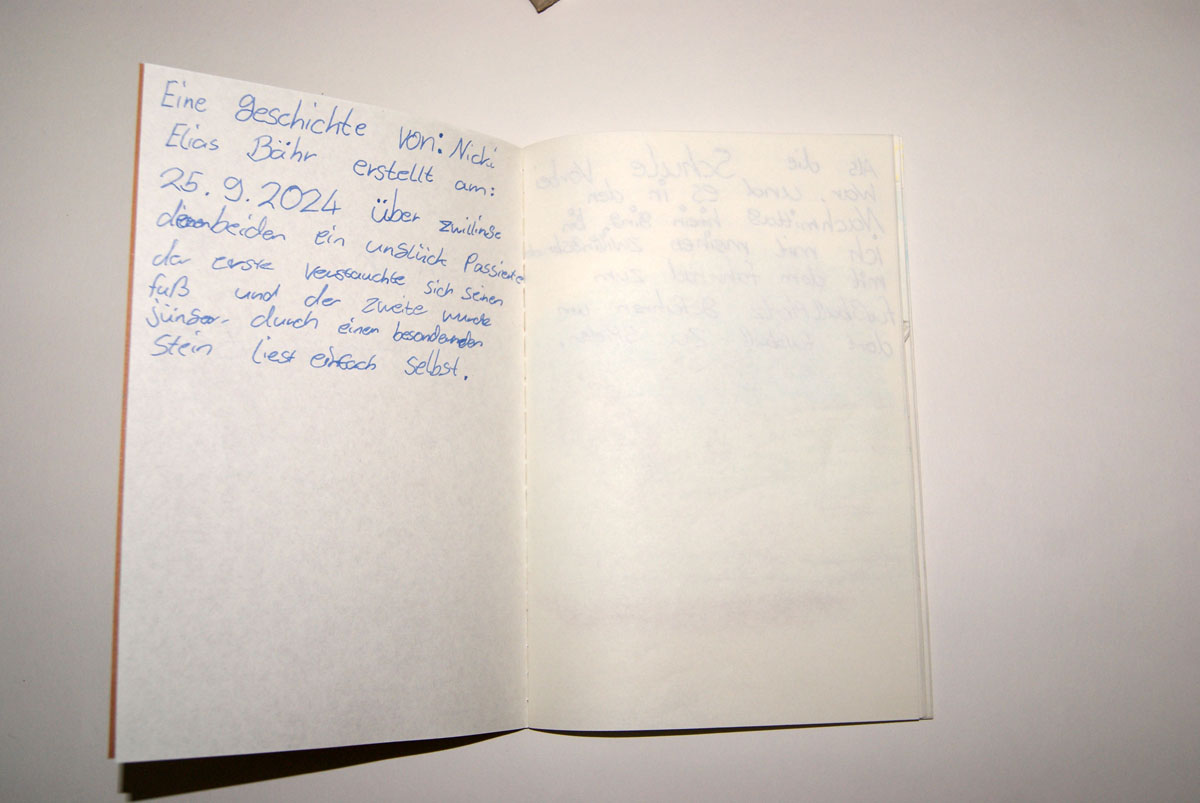 Eine geschichte von: Nicki
Elias Bähr erstellt am:
25.9.2024 über zwillinge
beiden ein unglück Passierte
der erste verstauchte sich seinen
fuß und der zweite wurde
jünger durch einen besonderen
Stein liest einfach selbst.
Als die Schule Vorbei
War. und es in den
Nachmittag hinein ging,
ich mit meinem
mit dem fahrrad zum
um
dort Fußball zu